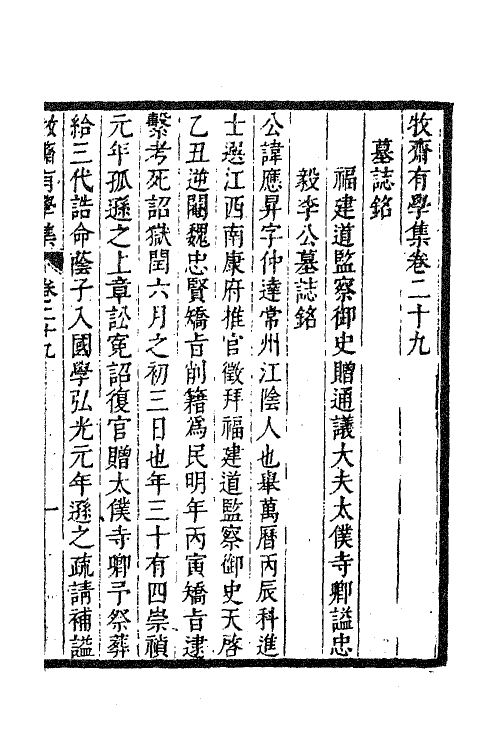 牧齋有學集卷二十九
墓誌銘
福建道監察御史贈通議大夫太僕寺卿謚忠
毅李公墓誌銘
公諱應昇字仲達常州江陰人也舉萬曆丙辰科進
士選江西南康府推官徵拜福建道監察御史天啓
乙丑逆閹魏忠賢矯旨削籍爲民明年丙寅矯旨逮
繫考死詔獄閏六月之初三日也年三十有四崇禎
元年孤遜之上章訟寃詔復官贈太僕寺卿予祭葬
給三代誥命蔭子入國學弘光元年遜之疏請補謚
牧齋有學集 卷二十九 一